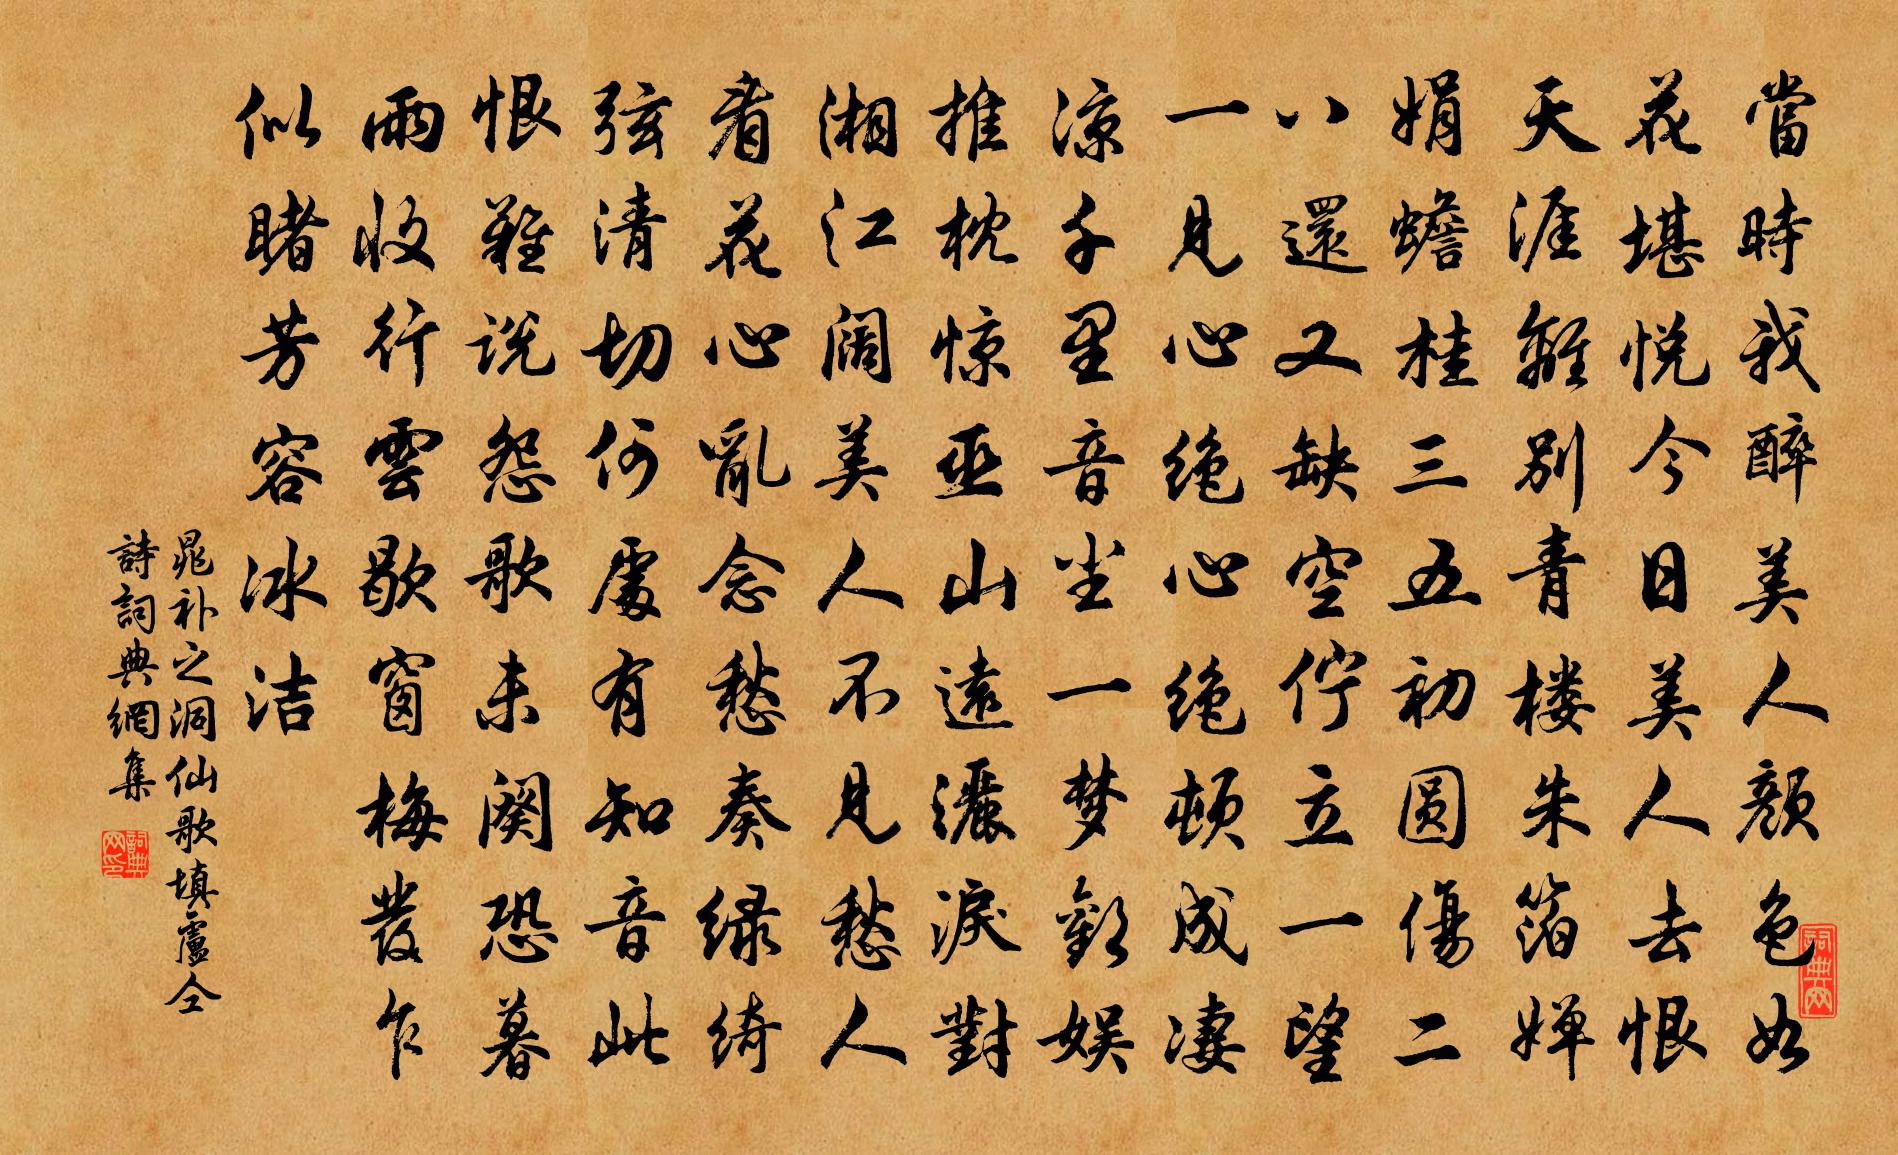 當時我醉美人顏色如
花堪悦今日美人去恨
天涯離別青楼朱箔婵
娟蟾桂三五初圆傷二
八還又缺空佇立一望
一見心绝心绝頓成凄
凉千里音尘一梦歡娱
推枕惊巫山遠灑淚對
湘江阔美人不見愁人
看花心亂念愁奏绿绮
弦清切何處有知音此
恨難说怨歌未阕恐暮
雨收行雲歇窗梅發乍
似睹芳容冰洁
晁补之洞仙歌填盧仝
詩詞典網集
詞典网
詞典网印